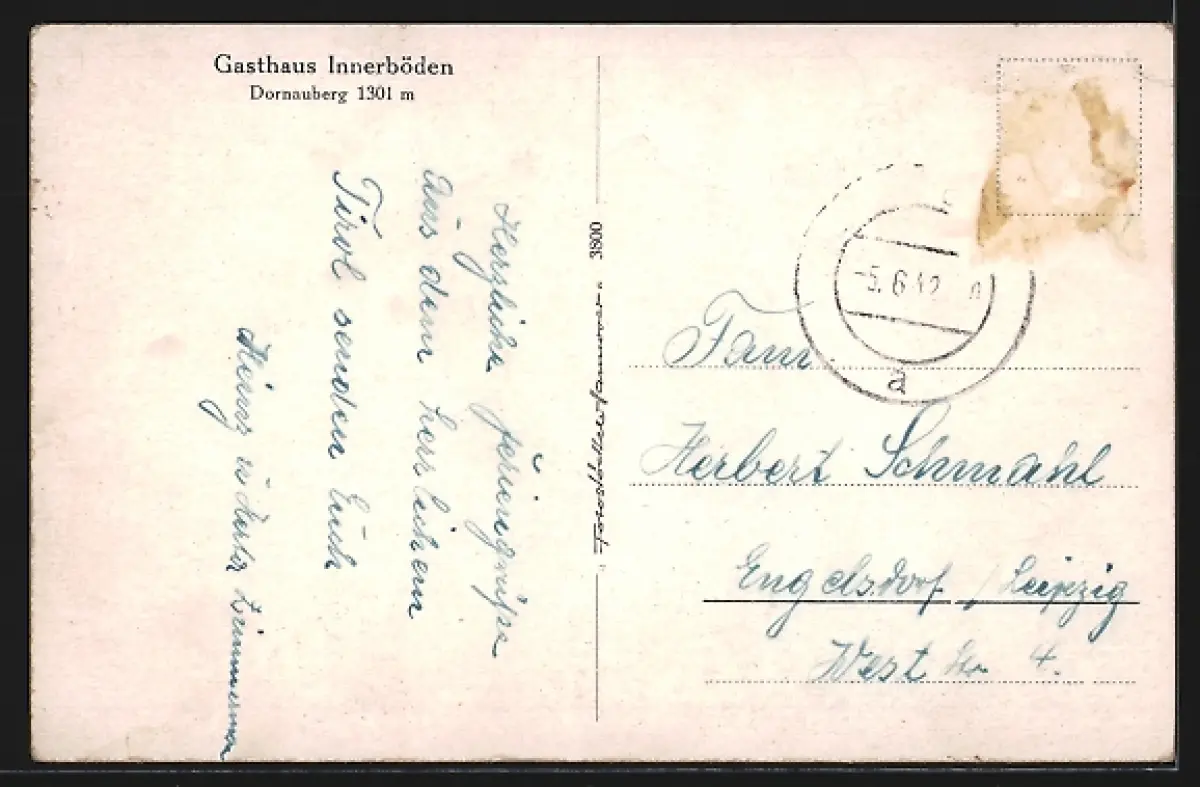 Gasthaus Innerböden
Dornauberg 1301 m
Herzliche Feriengrüsse
Aus dem herrlichem
Tirol senden Euch
u Zimmerman
3800
-5.6.42
a
Fam
Herbert Schmahl
Engelsdorf / Leipzig
West Str 4.